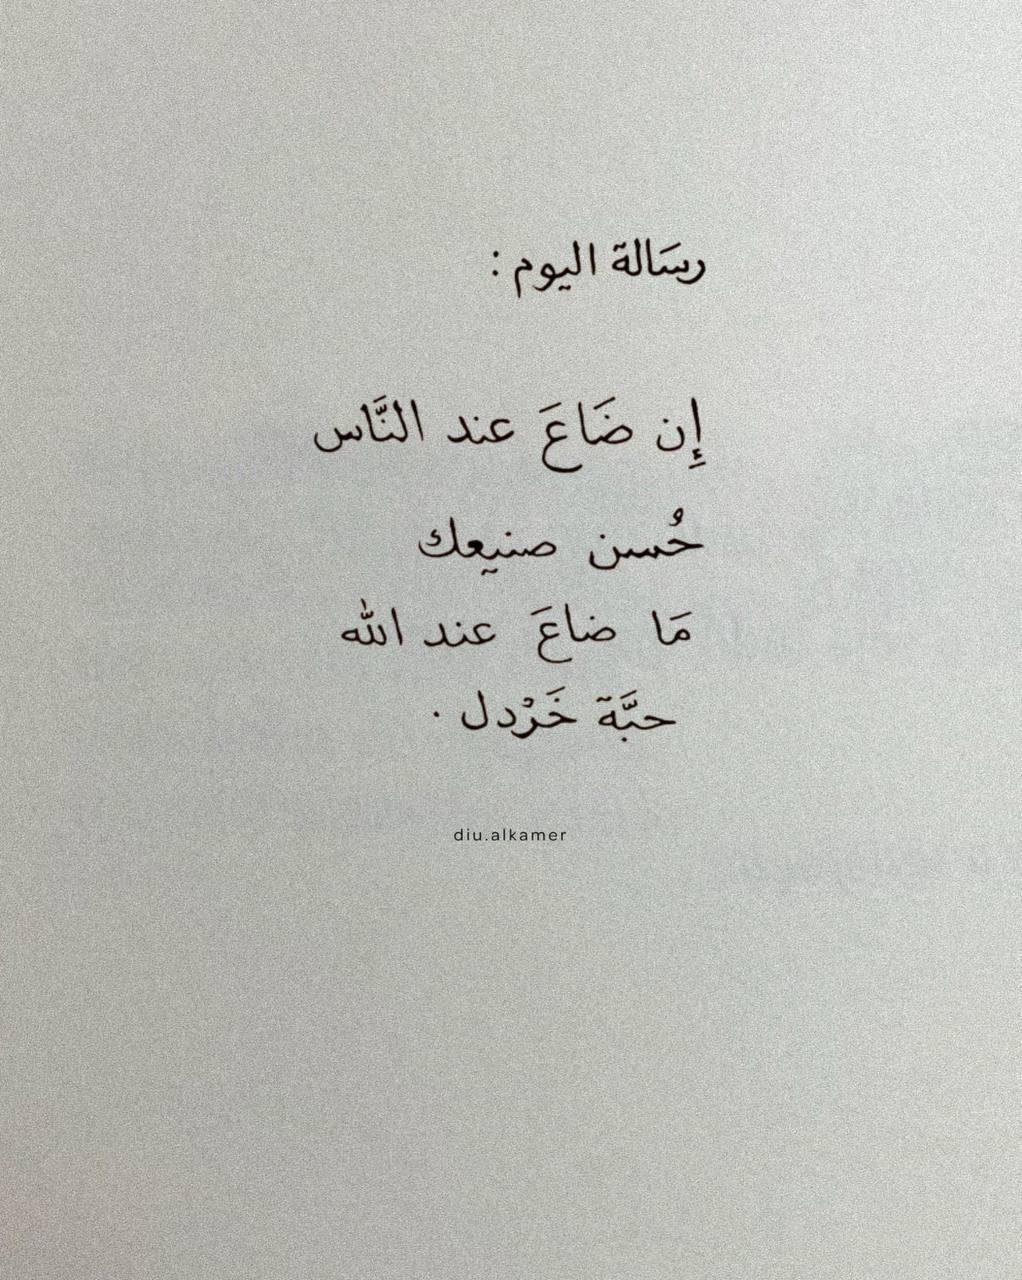 رسَالة اليوم :
إِن ضَاعَ عند النَّاس
حُسن صنيعك
مَا ضاعَ عند الله
حبَّة خَرْدل .
diu.alkamer